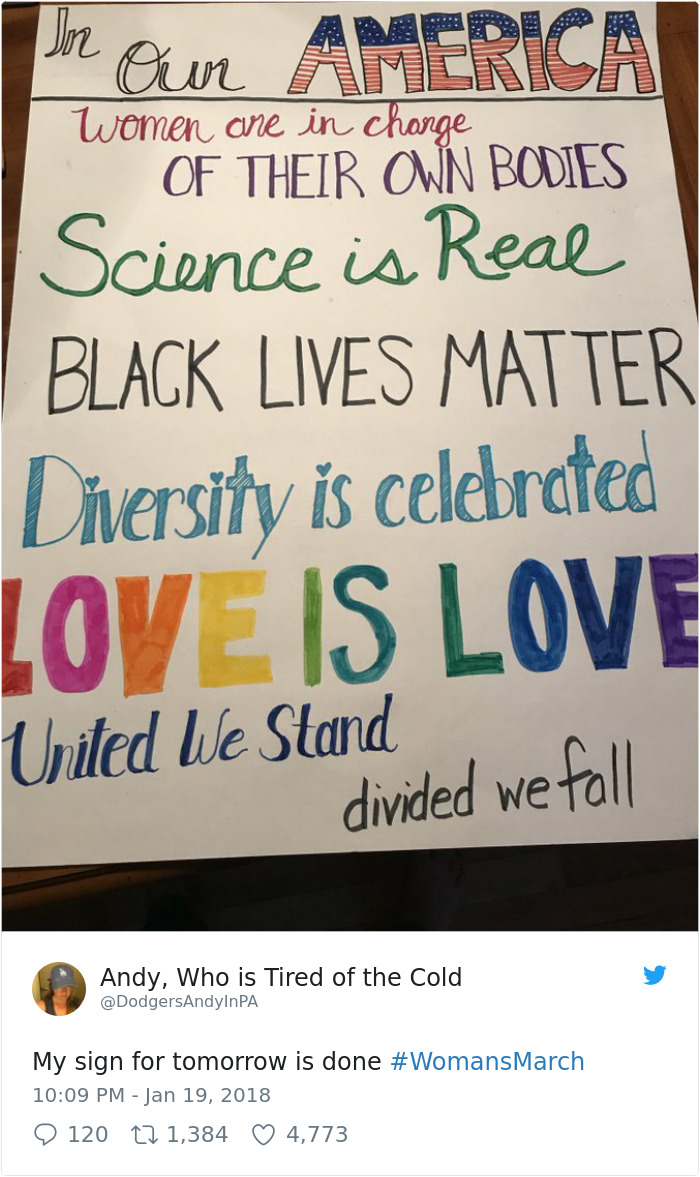 In Our AMERICA
Women are in charge
OF THEIR OWN BODIES
Science is Real
BLACK LIVES MATTER
Diversity is celebrated
LOVE IS LOVE
United We Stand
divided we fall
Andy, Who is Tired of the Cold
@DodgersAndyInPA
My sign for tomorrow is done #WomansMarch
10:09 PM - Jan 19, 2018
120 1,384 4,773